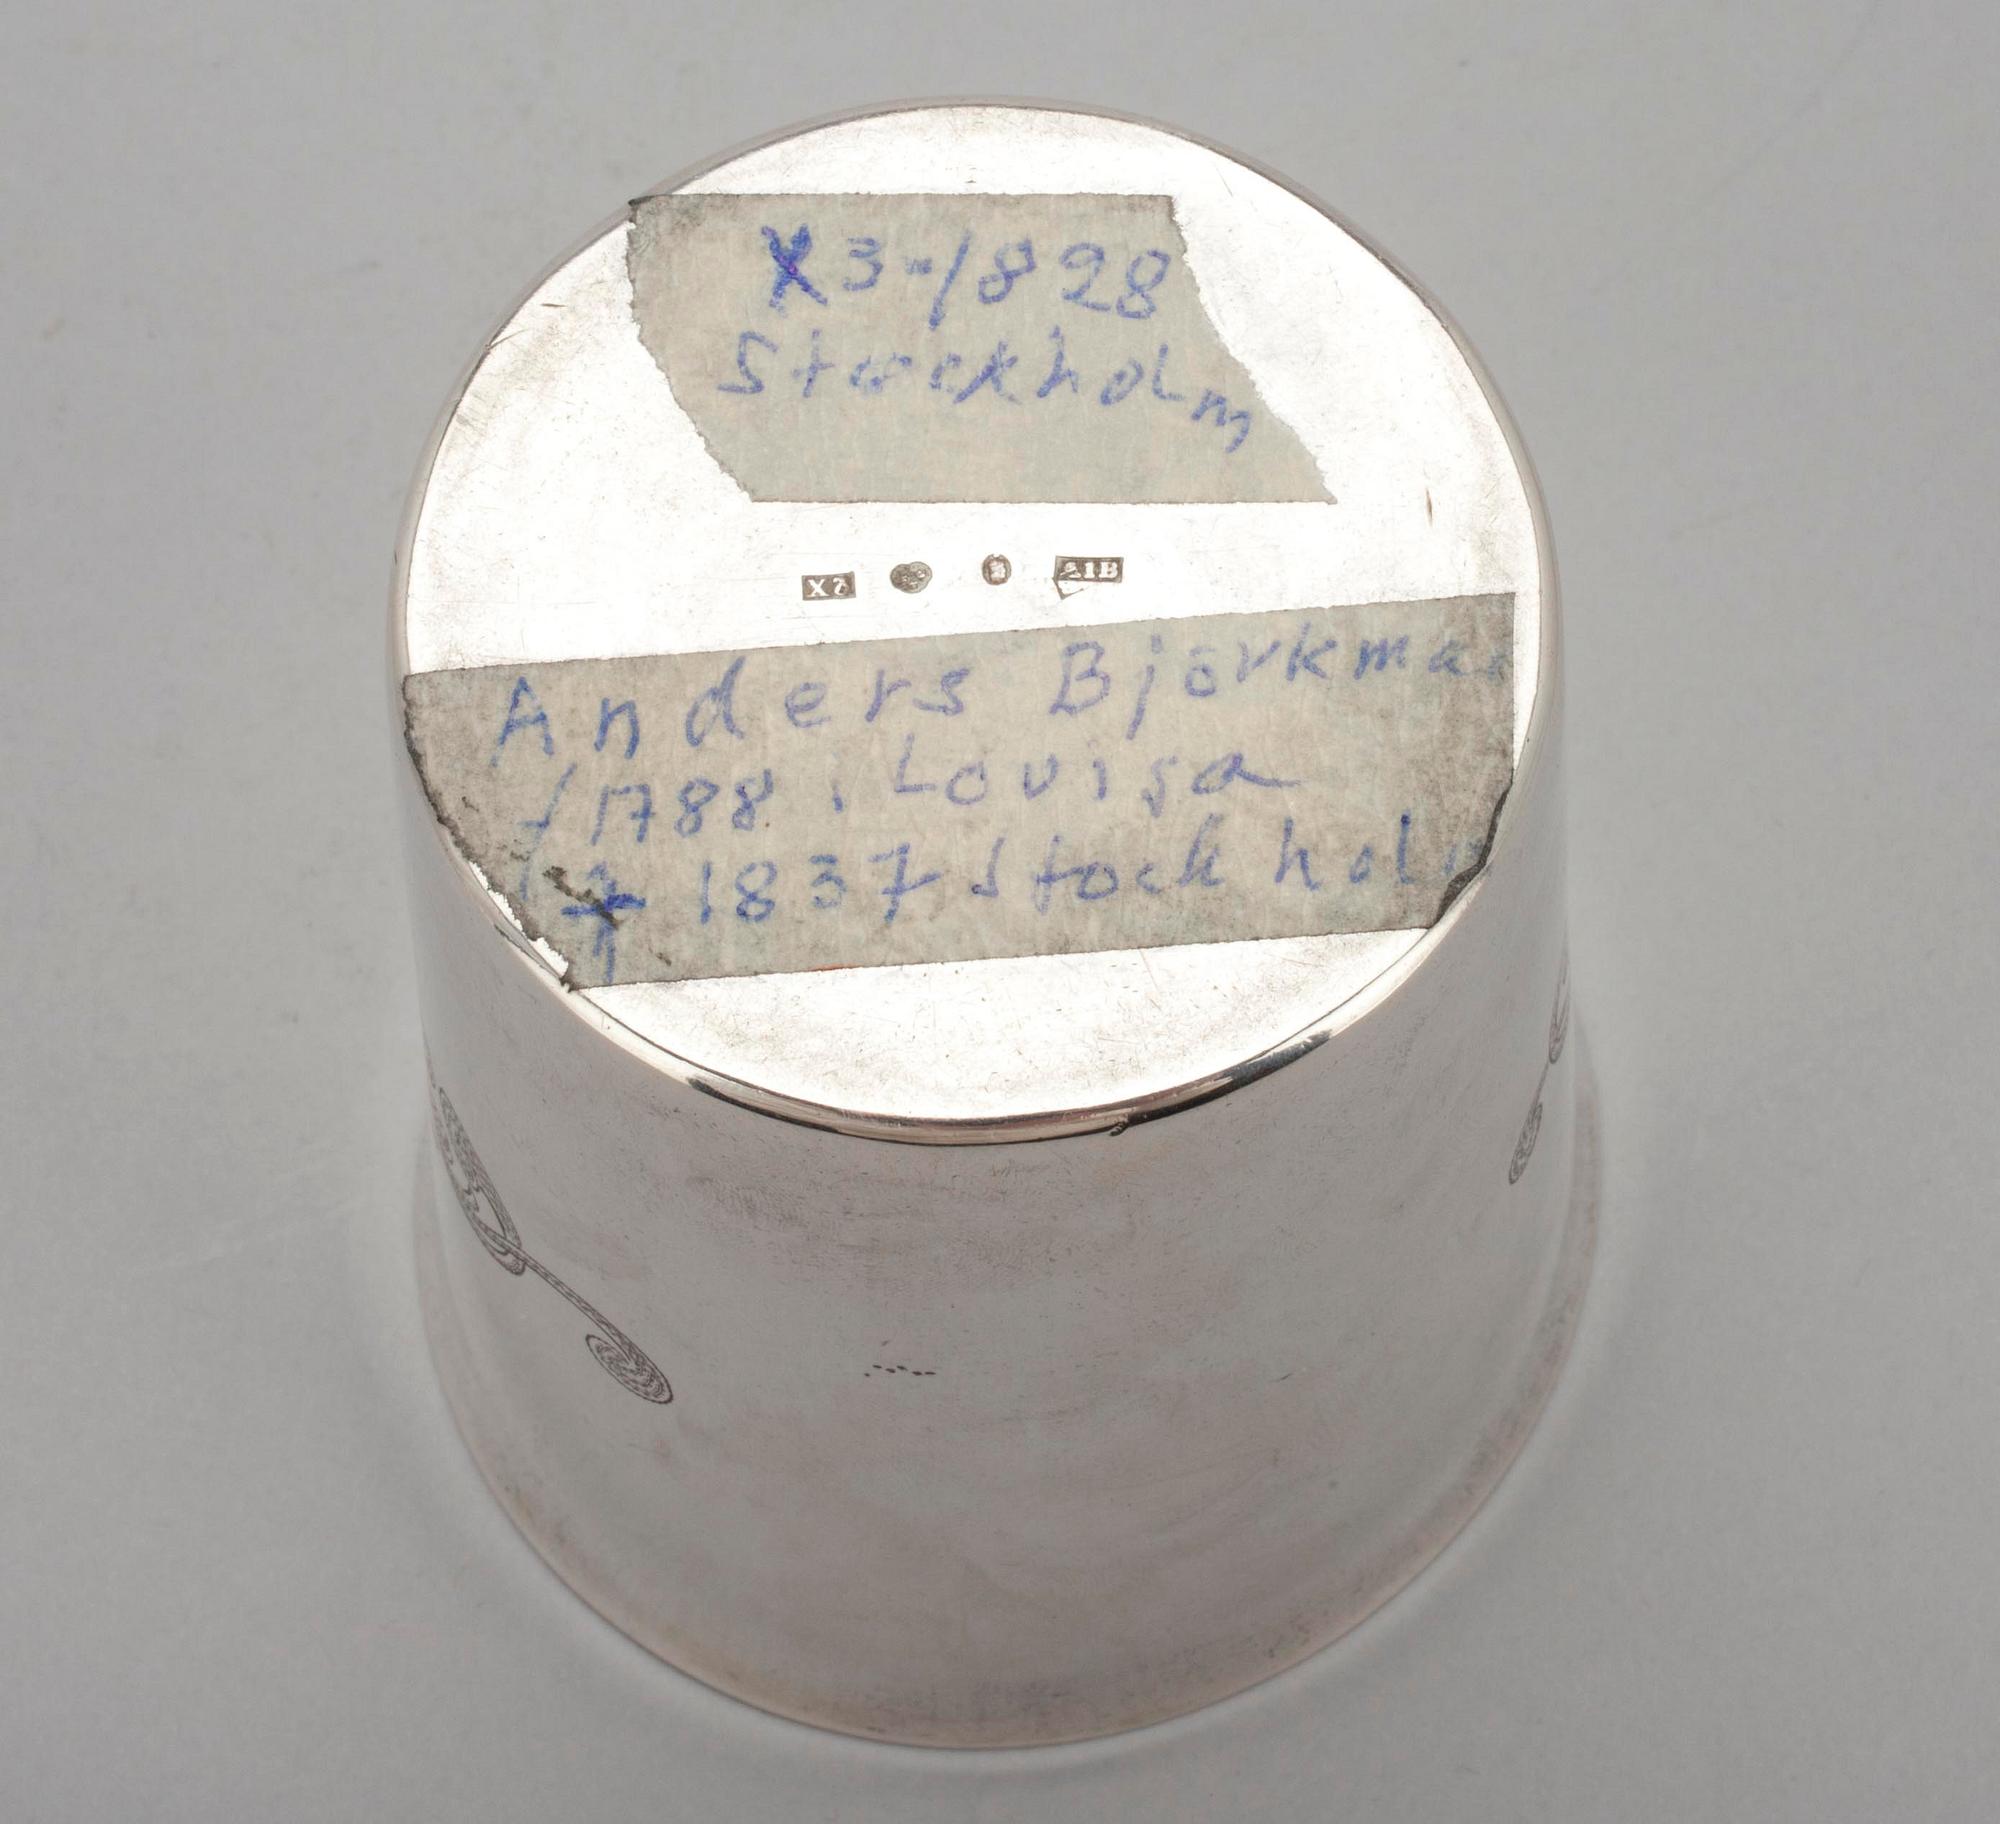 X3-1828
Stockholm
X7
AIB
Anders Björkman
1788 i Lovisa
1837 Stockholm